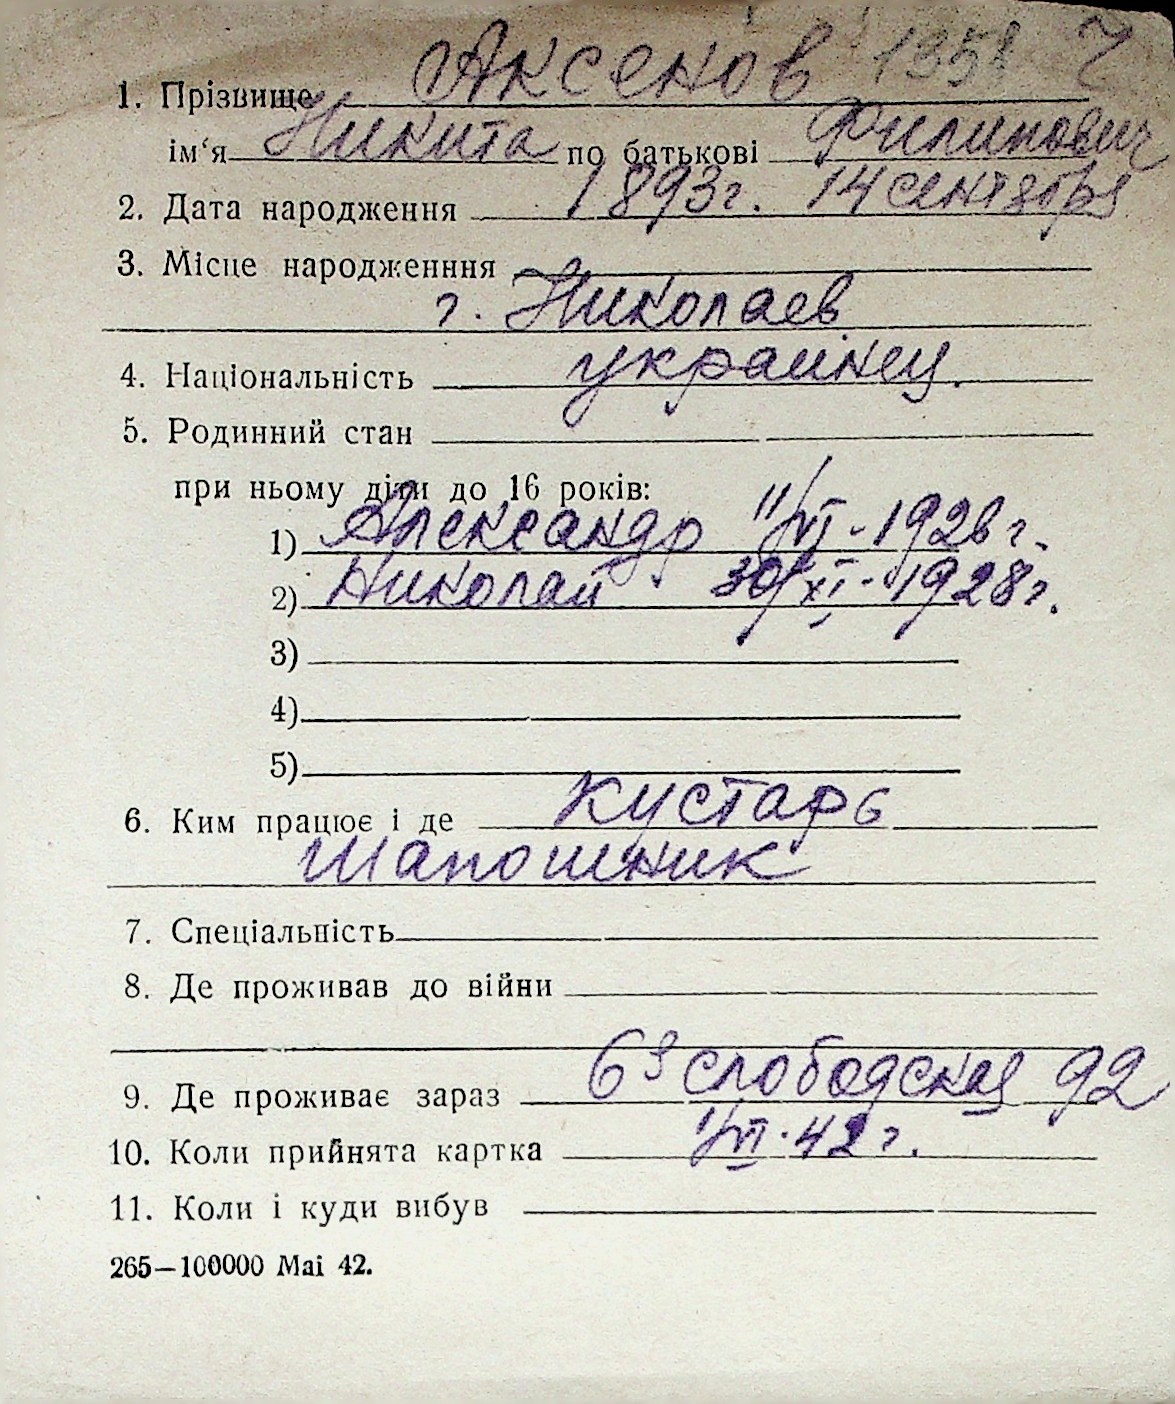 1. Прізвище Аксенов 1358 Ч
ім‘я Никита по батькові Филипович
2. Дата народження 1893г. 14 сентября
3. Місце народженння
г. Николаев
4. Національність украинец.
5. Родинний стан
при ньому діти до 16 років:
1) Александр 11/VI - 1926 г.
2) Николай 30/XI - 1928 г.
3)
4)
5)
6. Ким працює і де Кустарь
Шапошник
7. Спеціальність
8. Де проживав до війни
9. Де проживає зараз 6я слободская 92
10. Коли прийнята картка 1/VI. 42 г.
11. Коли і куди вибув
265—100000 Маі 42.